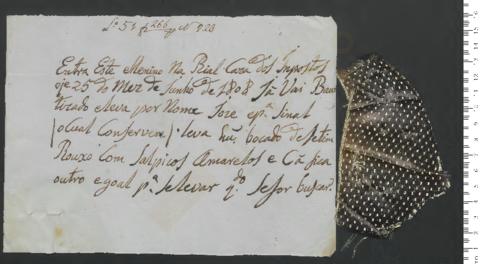 Lº 5º fl 266 Nº 528
Entra Este Menino Na Rial Caza dos Impostos
oje 25 do Mez de Junho de 1808 Já Vai Bau
tizado eleva por Nome Joze e pª Sinal
o cual Conservem leva hũ bocado de setim
Rouxo Com Salpicos Amarelos e Cá fica
outro egoal pª se levar qdo se for buscar.